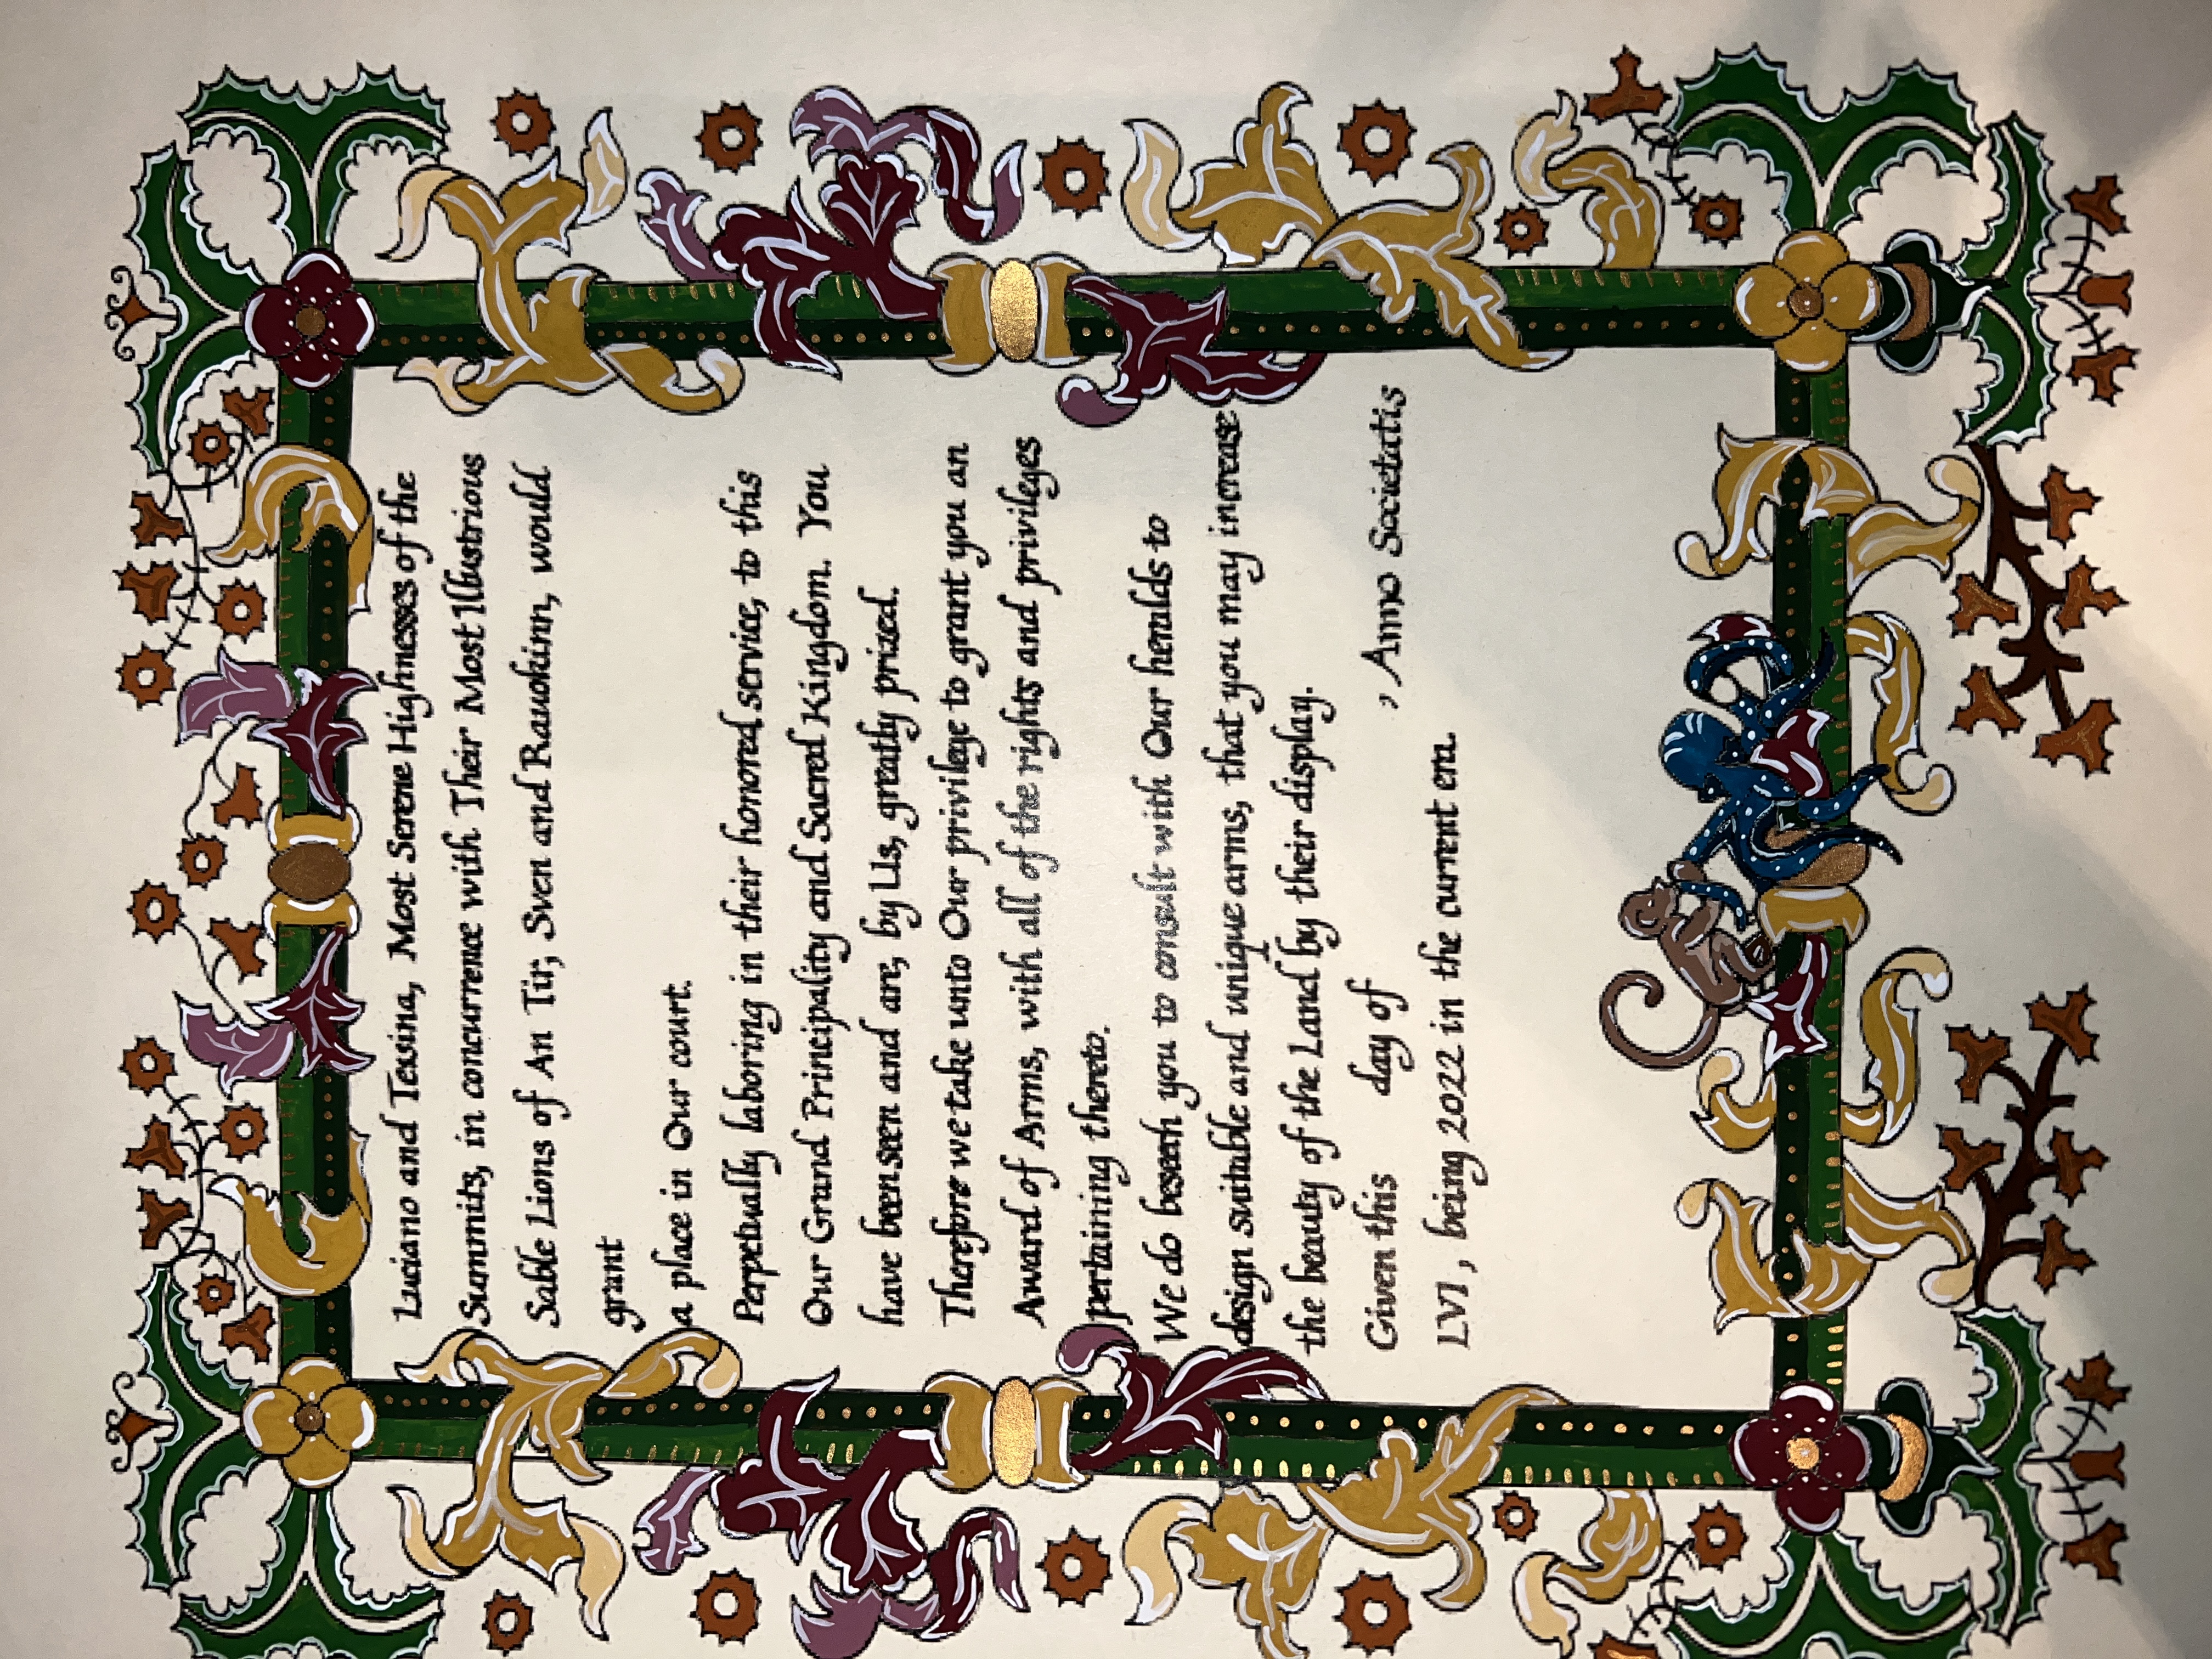 Luciano and Texina, Most Serene Highnesses of the
Summits, in concurrence with Their Most Illustrious
Sable Lions of An Tir, Sven and Rauokinn, would
grant
a place in Our court.
Perpetually laboring in their honored service, to this
Our Grand Principality and Sacred Kingdom. You
have been seen and are, by Us, greatly prized.
Therefore we take unto Our privilege to grant you an
Award of Arms, with all of the rights and privileges
pertaining thereto.
We do beseech you to consult with Our heralds to
design suitable and unique arms, that you may increase
the beauty of the Land by their display.
Given this day of , Anno Societatis
LVI, being 2022 in the current era.